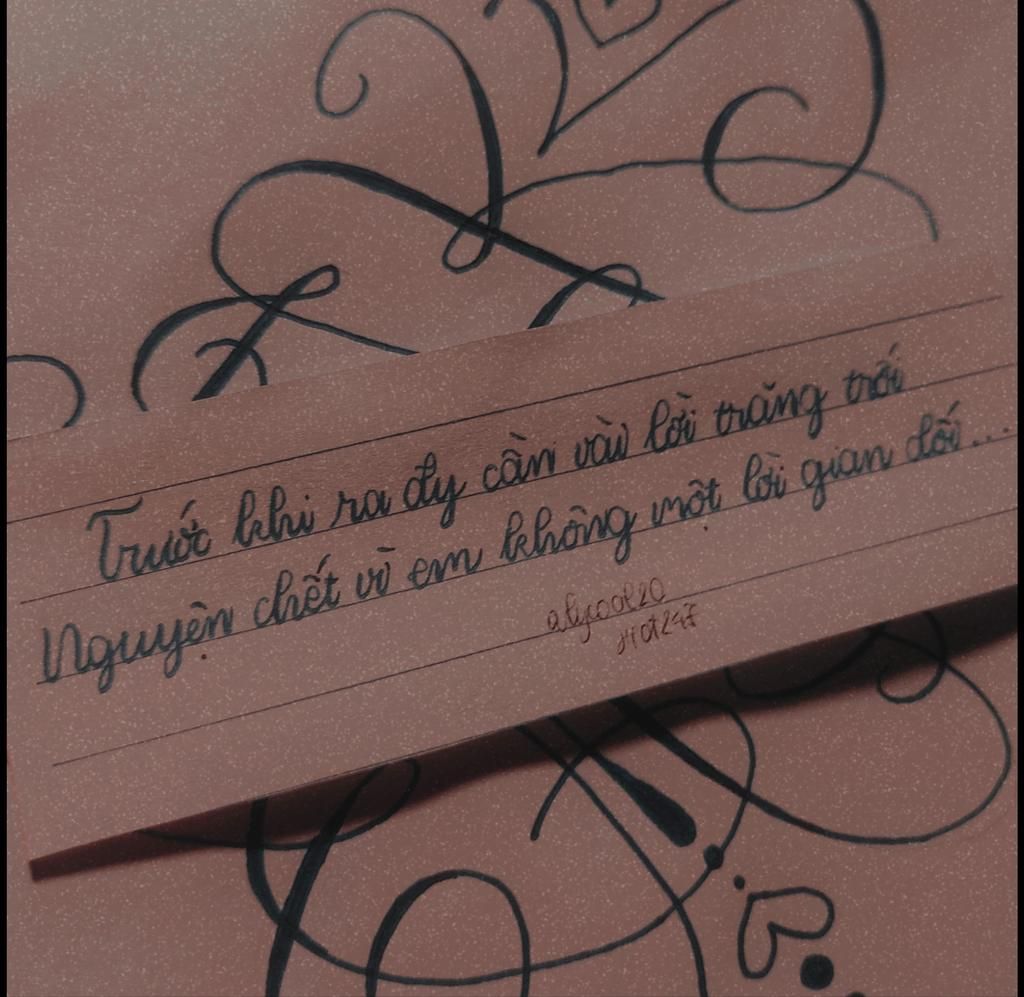 Trước khi ra đy cần vài lời trăng trối
Nguyện chết vì em không một lời gian dối...
alycool20